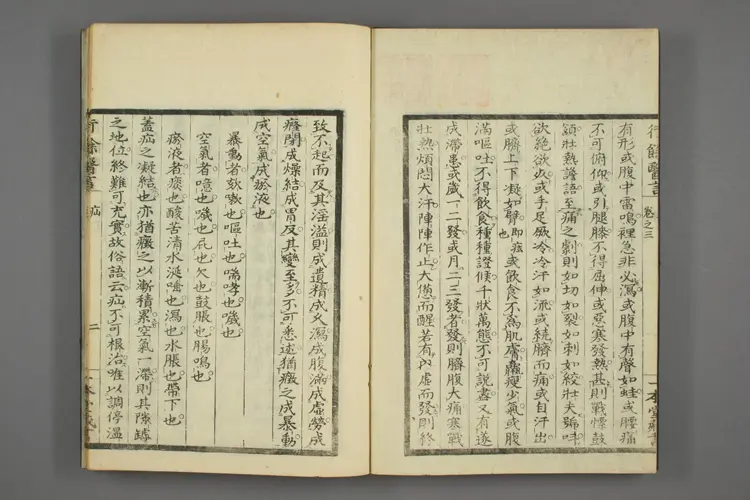 行餘醫言 卷之三
有形或腹中雷鳴裡急非必瀉或腹中有聲如蛙或腰痛
不可俯仰或引腿膝不得屈伸或惡寒發熱甚則戰慄鼓
頷壯熱譫語至痛之劇則如切如裂如刺如絞壯夫號呌
欲絶欲死或手足厥冷冷汗如流或繞臍而痛或自汗出
或臍上下凝如臂即痃也或飮食不爲肌膚羸瘦少氣或腹
滿嘔吐不得飮食種種證候千狀萬態不可說盡又有遂
成滯患或歲一二發或月二三發者發則臍腹大痛寒戰
壯熱煩悶大汗陣陣作止大憊而醒若有内虛而發則終
致不起而及其淫溢則成遺精成久瀉成腹滿成虛勞成
癃閉成燥結成胃反其變至多不可悉述猶癥之成暴動
成空氣成瘀液也
暴動者欬嗽也嘔吐也喘哮也噦也
空氣者噫也噦也屁也欠也鼓脹也腸鳴也
瘀液者痰也酸苦清水涎唾也瀉也水脹也帶下也
蓋疝之凝結也亦猶癥之以漸積累空氣一滯則其隊罅
之地位終難可充實故俗語云疝不可根治唯以調停溫
行餘醫言 疝 二